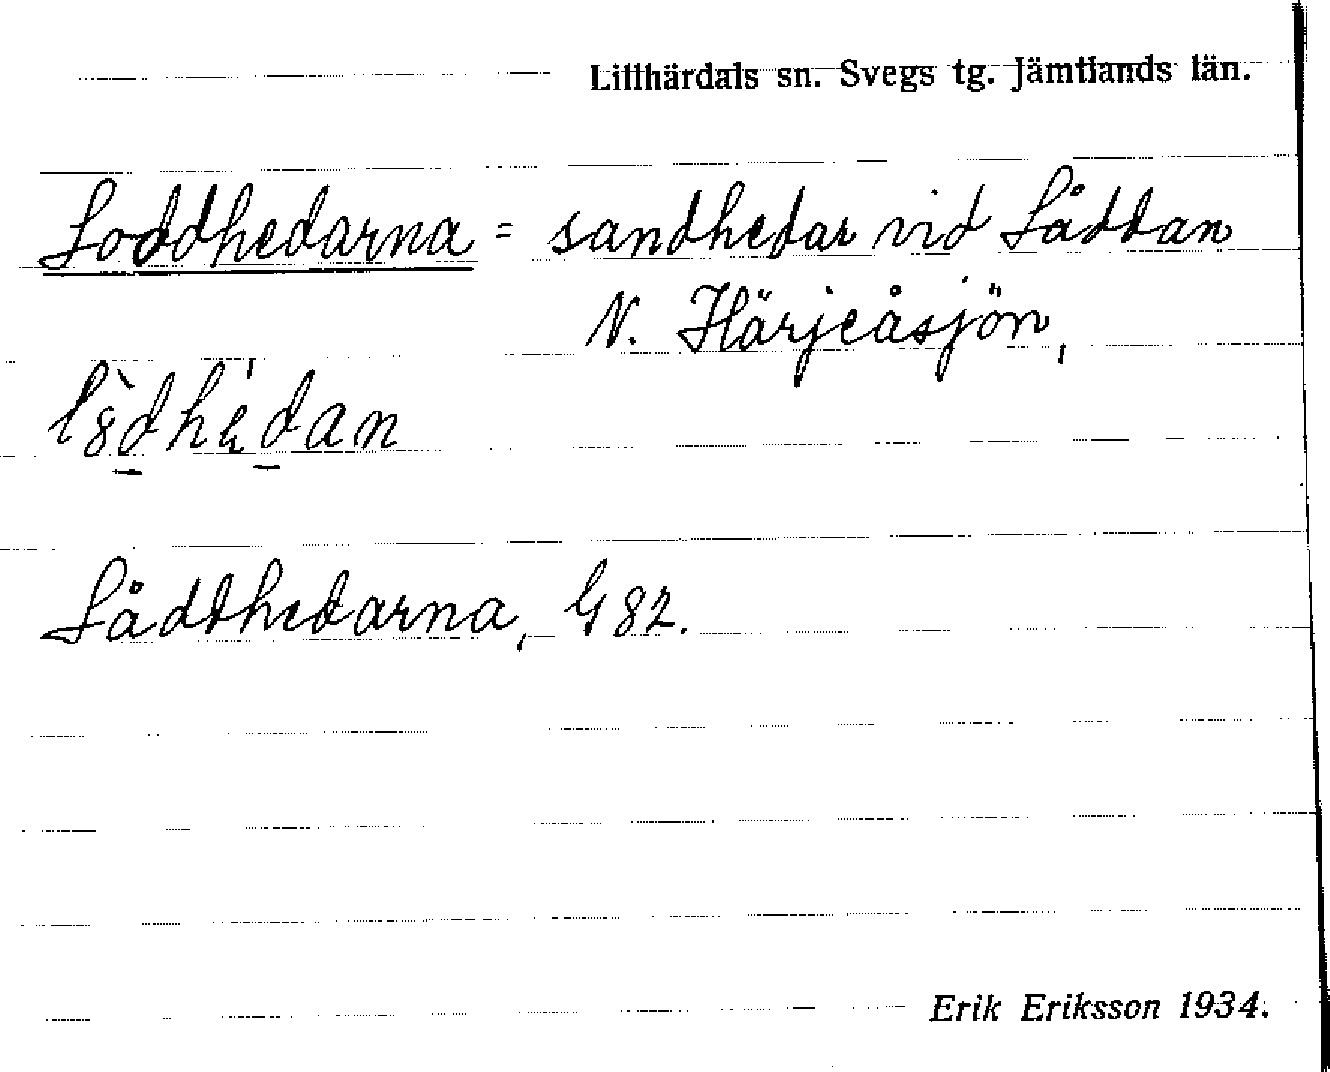 Lillhärdals sn. Svegs tg. Jämtlands län.
Loddhedarna = sandhedar vid Låddan
N. Härjeåsjön,
Låddhedarna, G 82.
Erik Eriksson 1934.